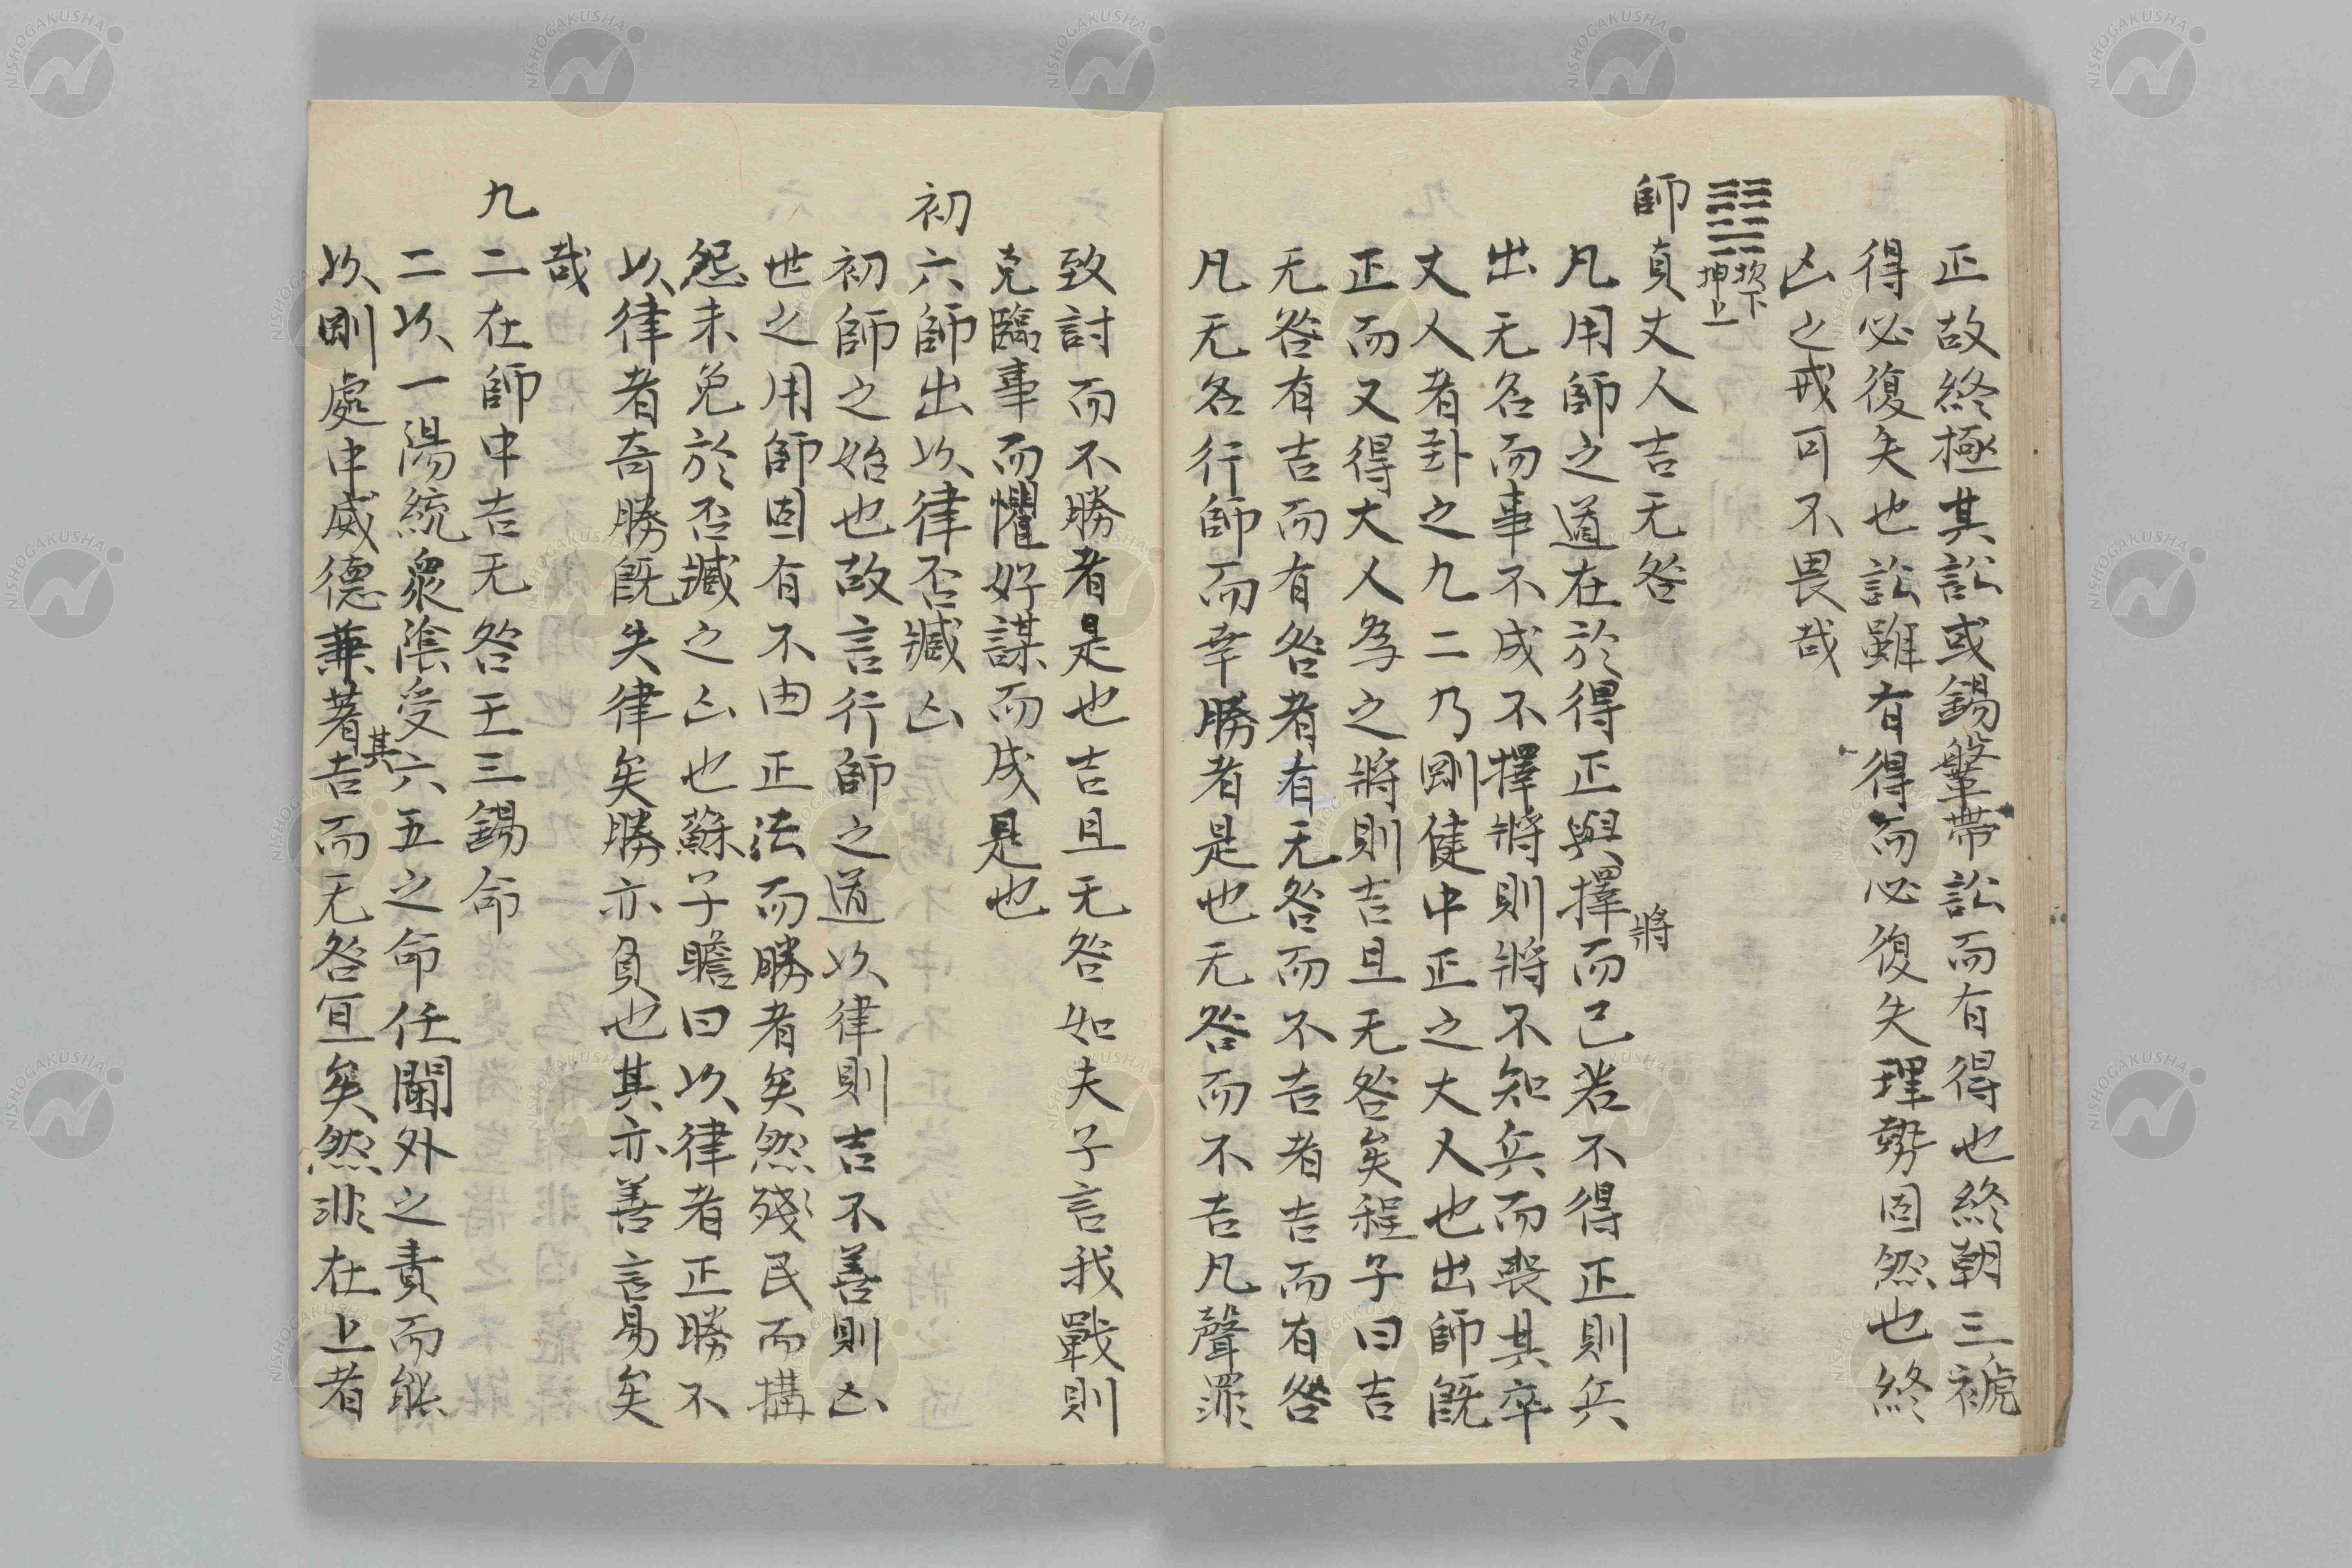 正故終極其訟或錫鞶帶訟而有得也終朝三褫
得必復失也訟雖有得而必復失理勢固然也終
凶之戒可不畏哉
坎下
坤上
師貞丈人吉无咎
凡用師之道在於得正與擇將而已若不得正則兵
出无名而事不成不擇將則將不知兵而喪其卒
丈人者卦之九二乃剛健中正之大人也出師既
正而又得大人為之將則吉且无咎矣程子曰吉
无咎有吉而有咎者有无咎而不吉者吉而有咎
凡无名行師而幸勝者是也无咎而不吉凡聲罪
致討而不勝者是也吉且无咎如夫子言我戰則
克臨事而懼好謀而成是也
初六師出以律否臧凶
初師之始也故言行師之道以律則吉不善則凶
世之用師固有不由正法而勝者矣然殘民而搆
怨未免於否臧之凶也蘇子瞻曰以律者正勝不
以律者奇勝既失律矣勝亦負也其亦善言易矣
哉
九二在師中吉无咎王三錫命
二以一陽統衆陰受六五之命任閫外之責而能
以剛處中威德兼著其吉而无咎宜矣然非在上者
NISHOGAKUSHA